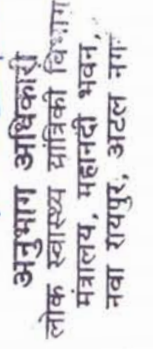 अनुभाग अधिकारी
लोक स्वास्थ्य यांत्रिकी विभाग
मंत्रालय, महानदी भवन,
नवा रायपुर, अटल नग